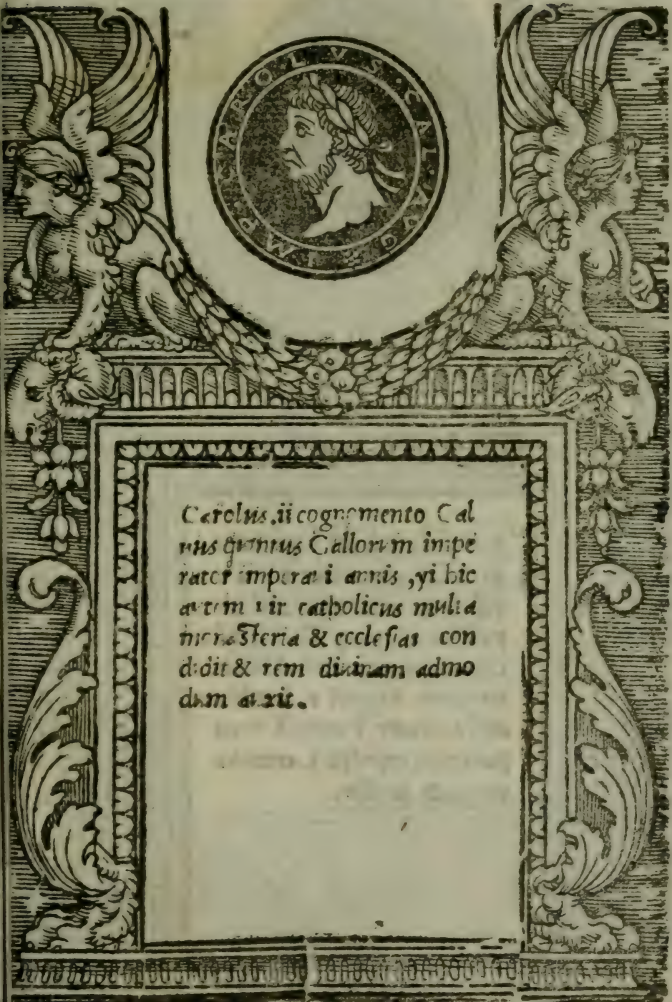 IMP CAROLVS·CAL·AVG
Carolus.ii cognomento Cal
uus quintus Gallorum impe
rator imperauit annis ,vi hic
autem uir catholicus multa
monasteria & ecclesias con
didit & rem diuinam admo
dum auxit.